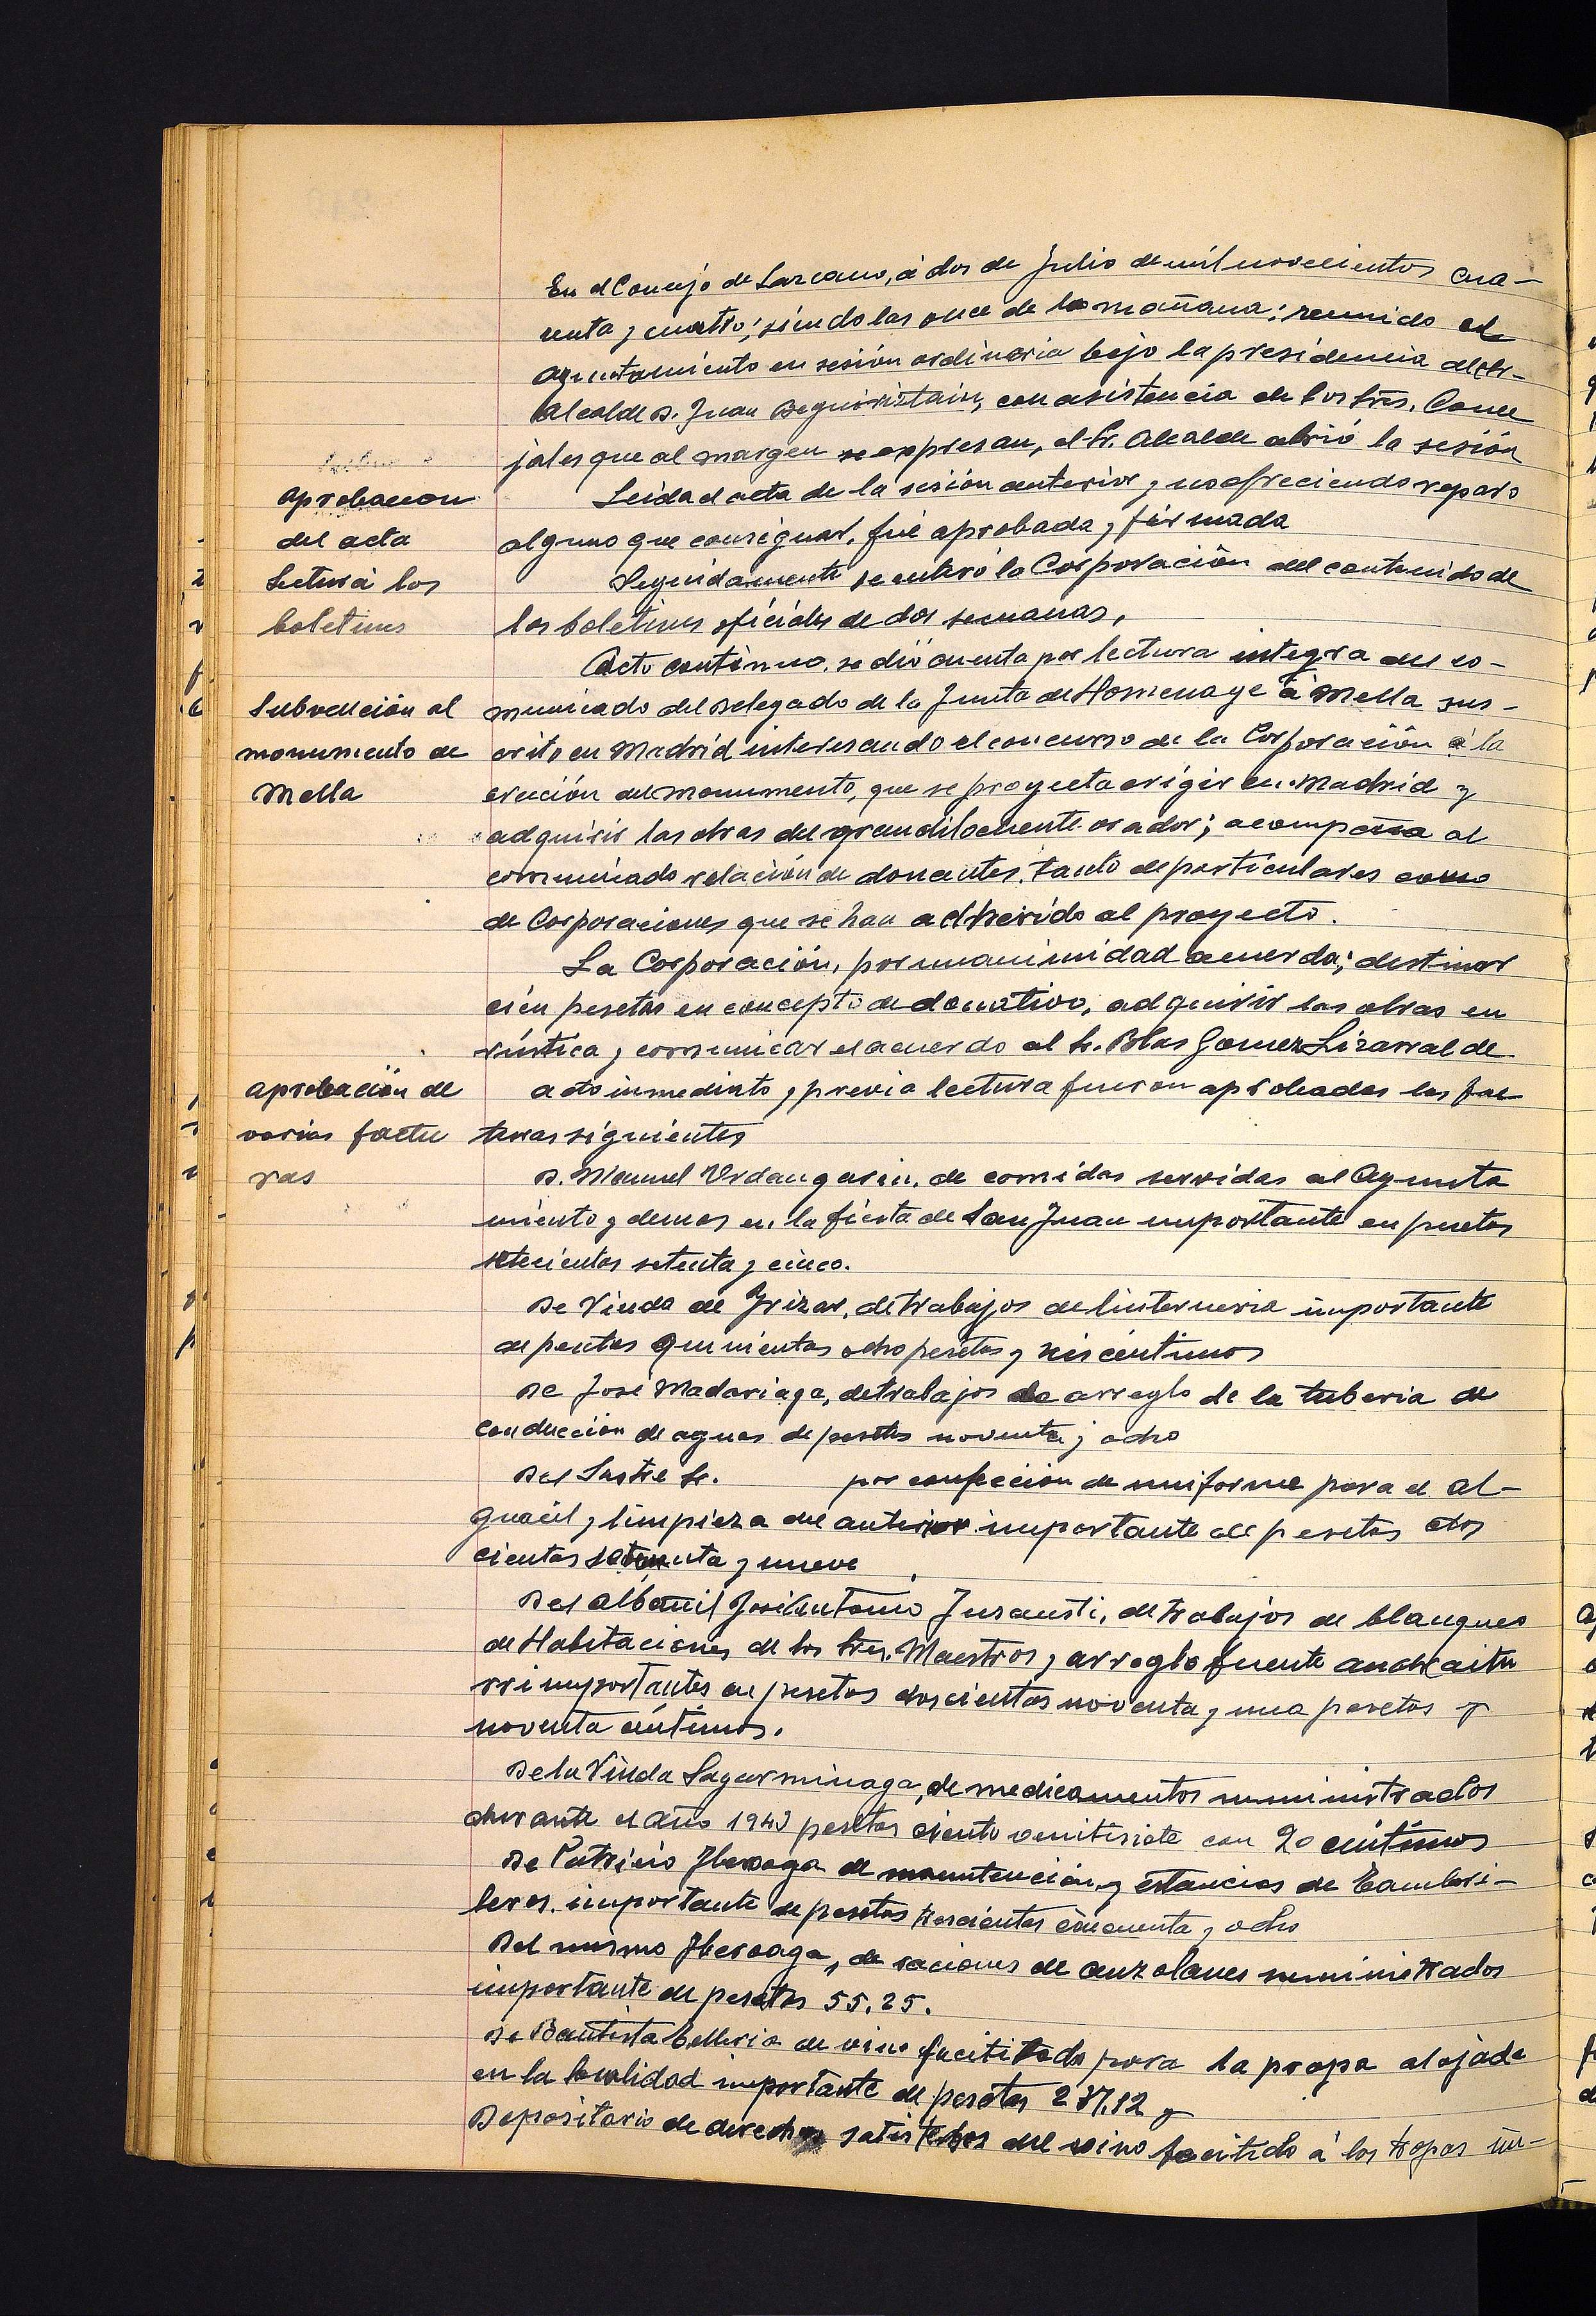 En el Concejo de Lazcano, á dos de Julio de mil novecientos cua-
renta y cuatro; siendo las once de la mañana; reunido el
Ayuntamiento en sesión ordinaria bajo la presidencia del Sr.
Alcalde D. Juan Beguiristain, con asistencia de los Sres. Conce
jales que al margen se expresan, el Sr. Alcalde abrió la sesión
Aprobacion
del acta
Leida el acta de la sesión anterior y no ofreciendo reparo
alguno que consignar, fué aprobada y firmada
Lectura á los
boletines
Seguidamente se enteró la Corporación del contenido de
los boletines oficiales de dos semanas,
Subvención al
monumento de
Mella
Acto continuo, se dió cuenta por lectura integra del co-
municado del Delegado de la Junta de Homenage á Mella sus-
crito en Madrid interesando el concurso de la Corporación á la
erección del monumento, que se proyecta erigir en Madrid y
adquirir las obras del grandilocuente orador; acompaña al
comunicado relación de donantes, tanto de particulares como
de Corporaciones que se han adherido al proyecto.
La Corporación, por unanimidad acuerda; destinar
cien pesetas en concepto de donativo, adquirir las obras en
rústica y comunicar el acuerdo al Sr. Blas Gomez Lizarralde
Aprobación de
varias factu
ras
acto inmediato y previa lectura fueron aprobadas las fac
turas siguientes
D. Manuel Urdangarin, de comidas servidas al Ayunta
miento y demas en la fiesta de San Juan importante en pesetas
setecientas setenta y cinco.
De Viuda de Irizar, de trabajos de linterneria importante
de pesetas quinientas ocho pesetas y seis céntimos
De José Madariaga, de trabajos de arreglo de la tuberia de
conducción de aguas de pesetas noventa y ocho
Del Sastre Sr. por confección de uniforme para el Al-
guacil y limpieza del anterior importante de pesetas dos
cientas setenta y nueve
Del albañil José Antonio Inzausti, de trabajos de blanqueo
de Habitaciones de los Sres. Maestros y arreglo fuente andreaitu
rri importantes en pesetas doscientas noventa y una pesetas y
noventa céntimos.
De la Viuda Sagarminaga, de medicamentos suministrados
durante el año 1943 pesetas ciento veintisiete con 20 céntimos
De Patricio de manutención y estancias de
importante de pesetas trescientas cincuenta y ocho
Del mismo de raciones de suministrados
importante de pesetas 55,25.
De Bautista de vino facilitado para la propa alojada
en la localidad importante de pesetas 237,12 y
Depositario de derechos satisfechos del vino facitido á los tropas im-